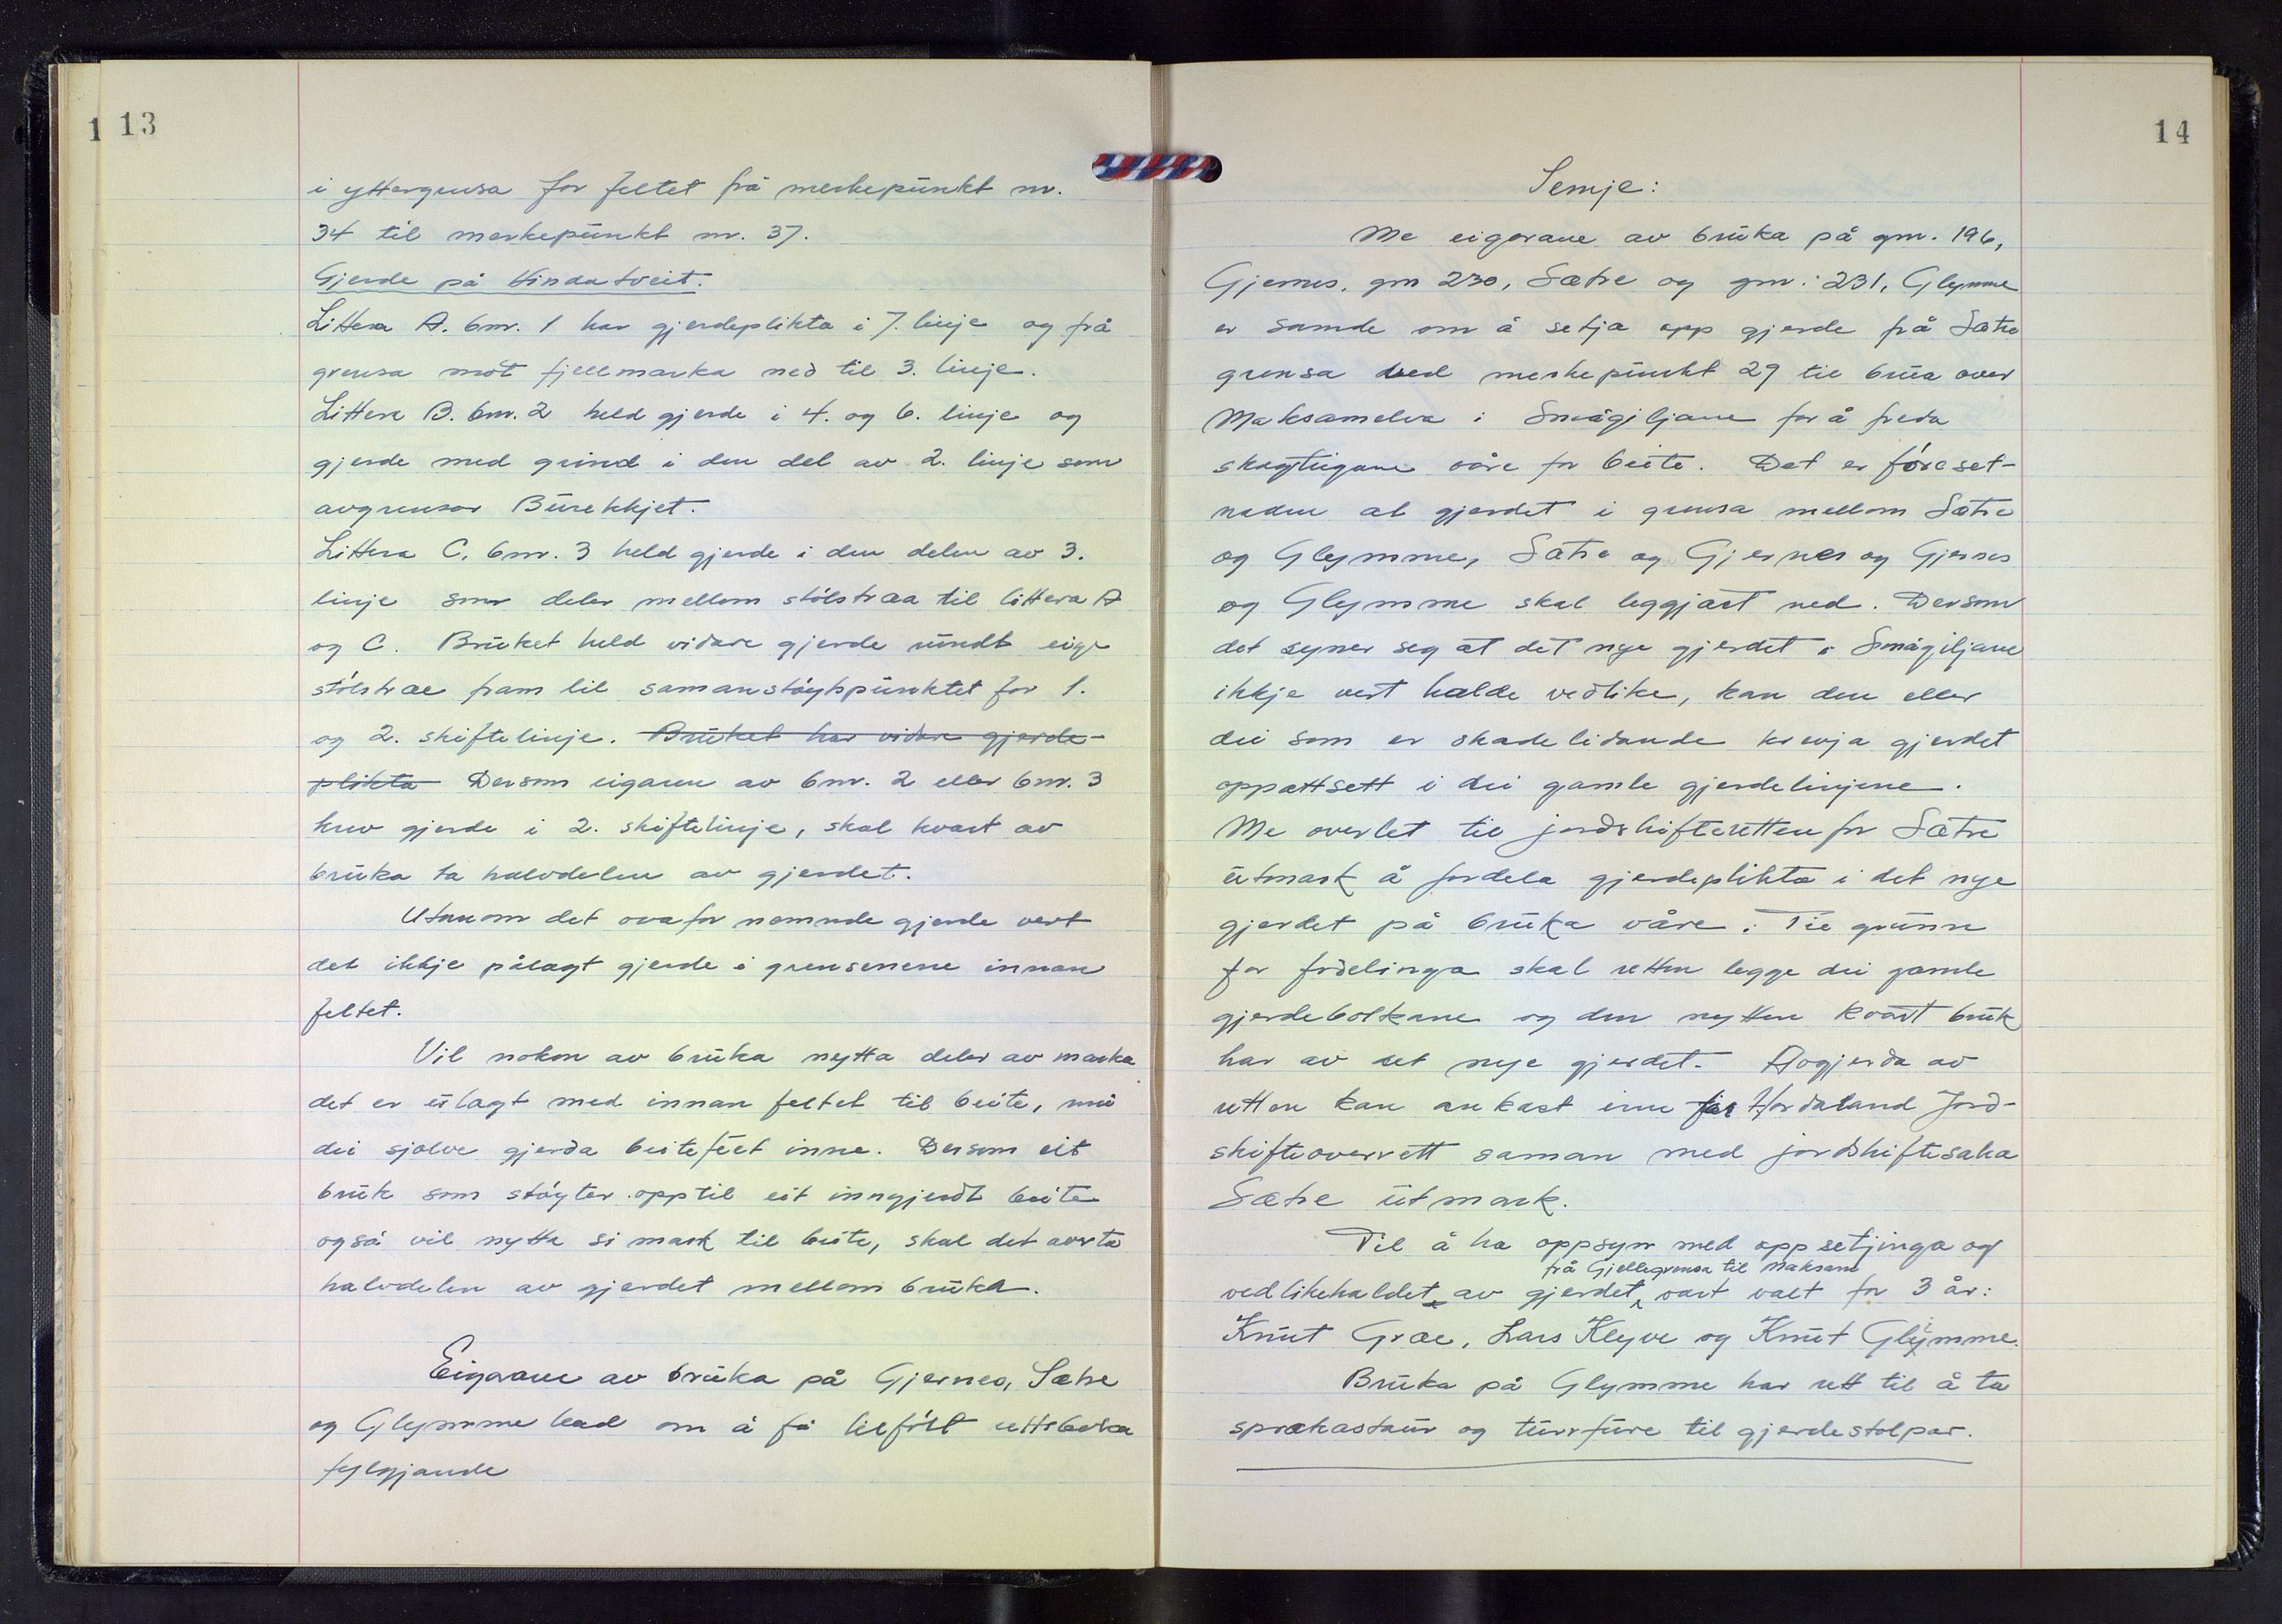 1 13
i yttergrensa for feltet frå merkepunkt nr.
34 til merkepunkt nr. 37.
Gjerde på Hindatveit.
Littera A. bnr. 1 har gjerdeplikta i 7. linje og frå
grensa mot fjellmarka ned til 3. linje.
Littera B. bnr. 2 held gjerde i 4. og 6. linje og
gjerde med grind i den del av 2. linje som
avgrensar Burekkjet.
Littera C. bnr. 3 held gjerde i den delen av 3.
linje som deler mellom stølstræa til littera A
og C. Bruket held vidare gjerde rundt eige
stølstræe fram til samanstøytspunktet for 1.
og 2. skiftelinje. Bruket har vidare gjerde-
plikta Dersom eigaren av bnr. 2 eller bnr. 3
krev gjerde i 2. skiftelinje, skal kvart av
bruka ta halvdelen av gjerdet.
Utanom det ovafor nemnde gjerde vert
det ikkje pålagt gjerde i grensenene innan
feltet.
Vil nokon av bruka nytta deler av marka
det er utlagt med innan feltet til beite, må
dei sjølve gjerda beitefeet inne. Dersom eit
bruk som støyter opp til eit inngjerdt beite
også vil nytta si mark til beite, skal det
halvdelen av gjerdet mellom bruka.
Eigarane av bruka på Gjernes, Sætre
og Glymme bad om å få tilført rettsboka
fylgjande
14
Semje:
Me eigarane av bruka på gnr. 196,
Gjernes, gnr 230, Sætre og gnr. 231, Glymme
er samde om å setja opp gjerde frå Sætre
grensa ved merkepunkt 29 til brua over
Maksamelva i Smågiljane for å freda
skogteigane våre for beite. Det er føreset-
naden at gjerdet i grensa mellom Sætre
og Glymme, Sætre og Gjernes og Gjernes
og Glymme skal leggjast ned. Dersom
det syner seg at det nye gjerdet i Smågiljane
ikkje vert halde vedlike, kan den eller
dei som er skadelidande krevja gjerdet
oppattsett i dei gamle gjerdelinjene.
Me overlet til jordskifteretten for Sætre
utmark å fordela gjerdeplikta i det nye
gjerdet på bruka våre. Til grunn
for fordelinga skal retten legge dei gamle
gjerdebolkane og den nytten kvart bruk
har av det nye gjerdet. Avgjerda av
retten kan ankast inn for Hordaland Jord-
skifteoverrett saman med jordskiftesaka
Sætre utmark.
Til å ha oppsyn med oppsetjinga og
frå Gjellegrensa til Maksame
vedlikehaldet av gjerdet vart valt for 3 år:
Knut Græe, Lars Kleyve og Knut Glymme.
Bruka på Glymme har rett til å ta
sprækastaur og turrfure til gjerdestolpar.